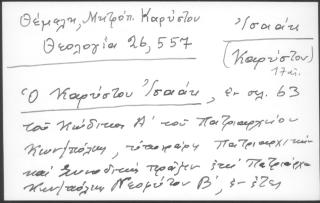 Θέμελη, Μητρόπ. Καρύστου
Θεολογία 26, 557
Ἰσαάκ
(Καρύστου)
17 αἰ.
Ὁ Καρύστου Ἰσαάκ, ἐν σελ. 63
τοῦ Κώδικος Α' τοῦ Πατριαρχείου
Κων/πόλεως, Πατριαρχικῶν
καὶ Συνοδικῶν πράξεων ἐπὶ Πατριάρχου
Κων/πόλεως Νεοφύτου Β', ἐν ἔτει